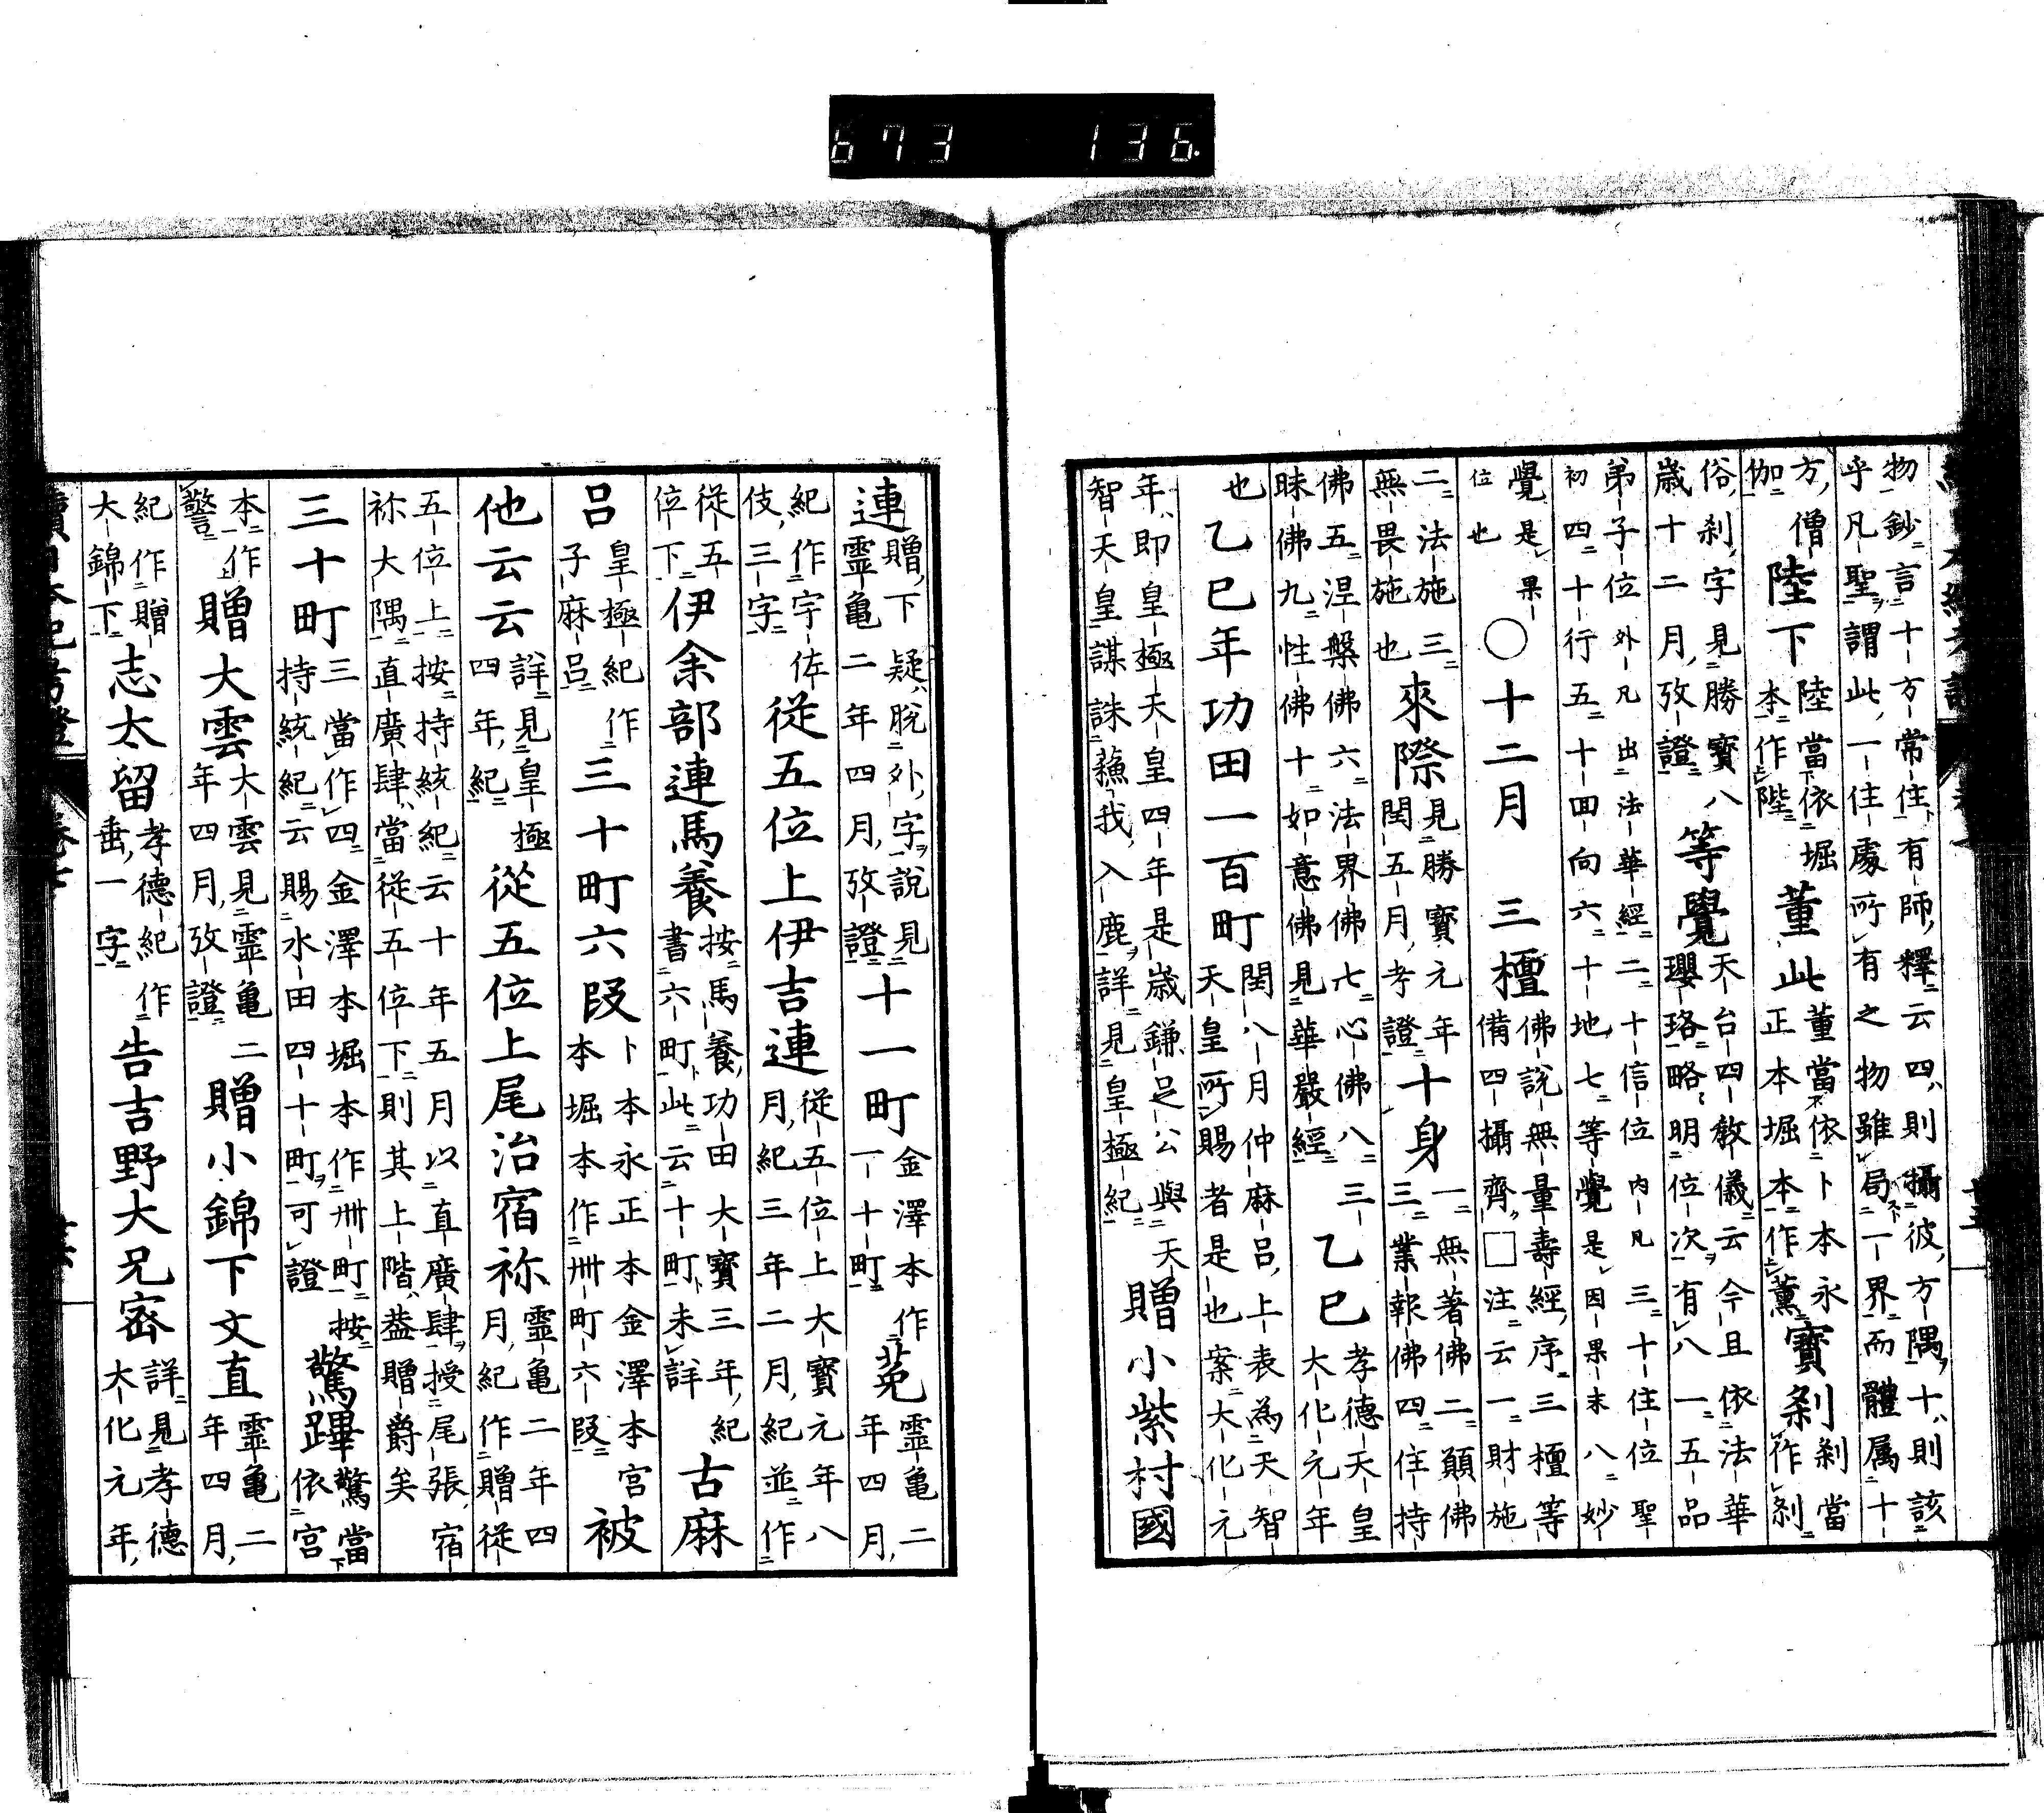 物鈔言十方常住有師釋云四則攝彼方隅十則該
乎凡聖謂此一住處所有之物雖局一界而體属十
方僧伽 陸下 陸當依堀本作陛 董此 董當依卜本永正本堀本作薫 寶刹 刹當作刹
俗刹字見勝寶八歳十二月攷證 等覺 天台四教儀云今且依法華瓔珞略明位次有八一五品
弟子位外凡出法華經二十信位内凡三十住位聖
初四十行五十回向六十地七等覺是因果末八妙
覺是果位也 ○十二月 三檀 佛說無量壽經序三檀等備四攝齊□注云一財施
二法施三無畏施也 來際 見勝寶元年閏五月考證 十身 一無著佛二願佛三業報佛四住持
佛五涅槃佛六法界佛七心佛八三昧佛九性佛十如意佛見華嚴經 乙巳 孝德天皇大化元年
也 乙巳年功田一百町 閏八月仲麻呂上表為天智天皇所賜者是也案大化元
年即皇極天皇四年是歳鎌足公與天智天皇謀誅蘓我入鹿詳見皇極紀 贈小紫村國
連 贈下疑脫外字說見靈亀二年四月攷證 十一町 金澤本作一十町 莵 靈亀二年四月
紀作宇佐伎三字 從五位上伊吉連 從五位上大寶元年八月紀三年二月紀並作
從五位下 伊余部連馬養 按馬養功田大寶三年紀書六町此云十町未詳 古麻
呂 皇極紀作子麻呂 三十町六段 卜本永正本金澤本宮本堀本作卅町六段 被
他云云 詳見皇極四年紀 從五位上尾治宿祢 靈亀二年四月紀作贈從
五位上按持統紀云十年五月以直廣肆授尾張宿
祢大隅直廣肆當從五位下則其上階葢贈爵矣
三十町 三當作四金澤本堀本作卅町按持統紀云賜水田四十町可證 驚蹕 驚當依宮
本作警 贈大雲 大雲見靈亀二年四月攷證 贈小錦下文直 靈亀二年四月
紀作贈大錦下 志太留 孝德紀作垂一字 告吉野大兄宻 詳見孝德大化元年
673 136